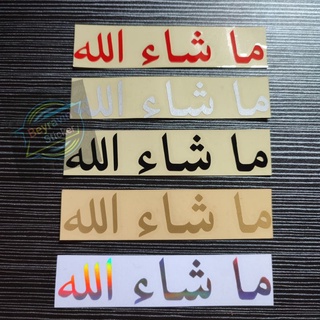 ما شاء الله
ما شاء الله
ما شاء الله
ما شاء الله
ما شاء الله